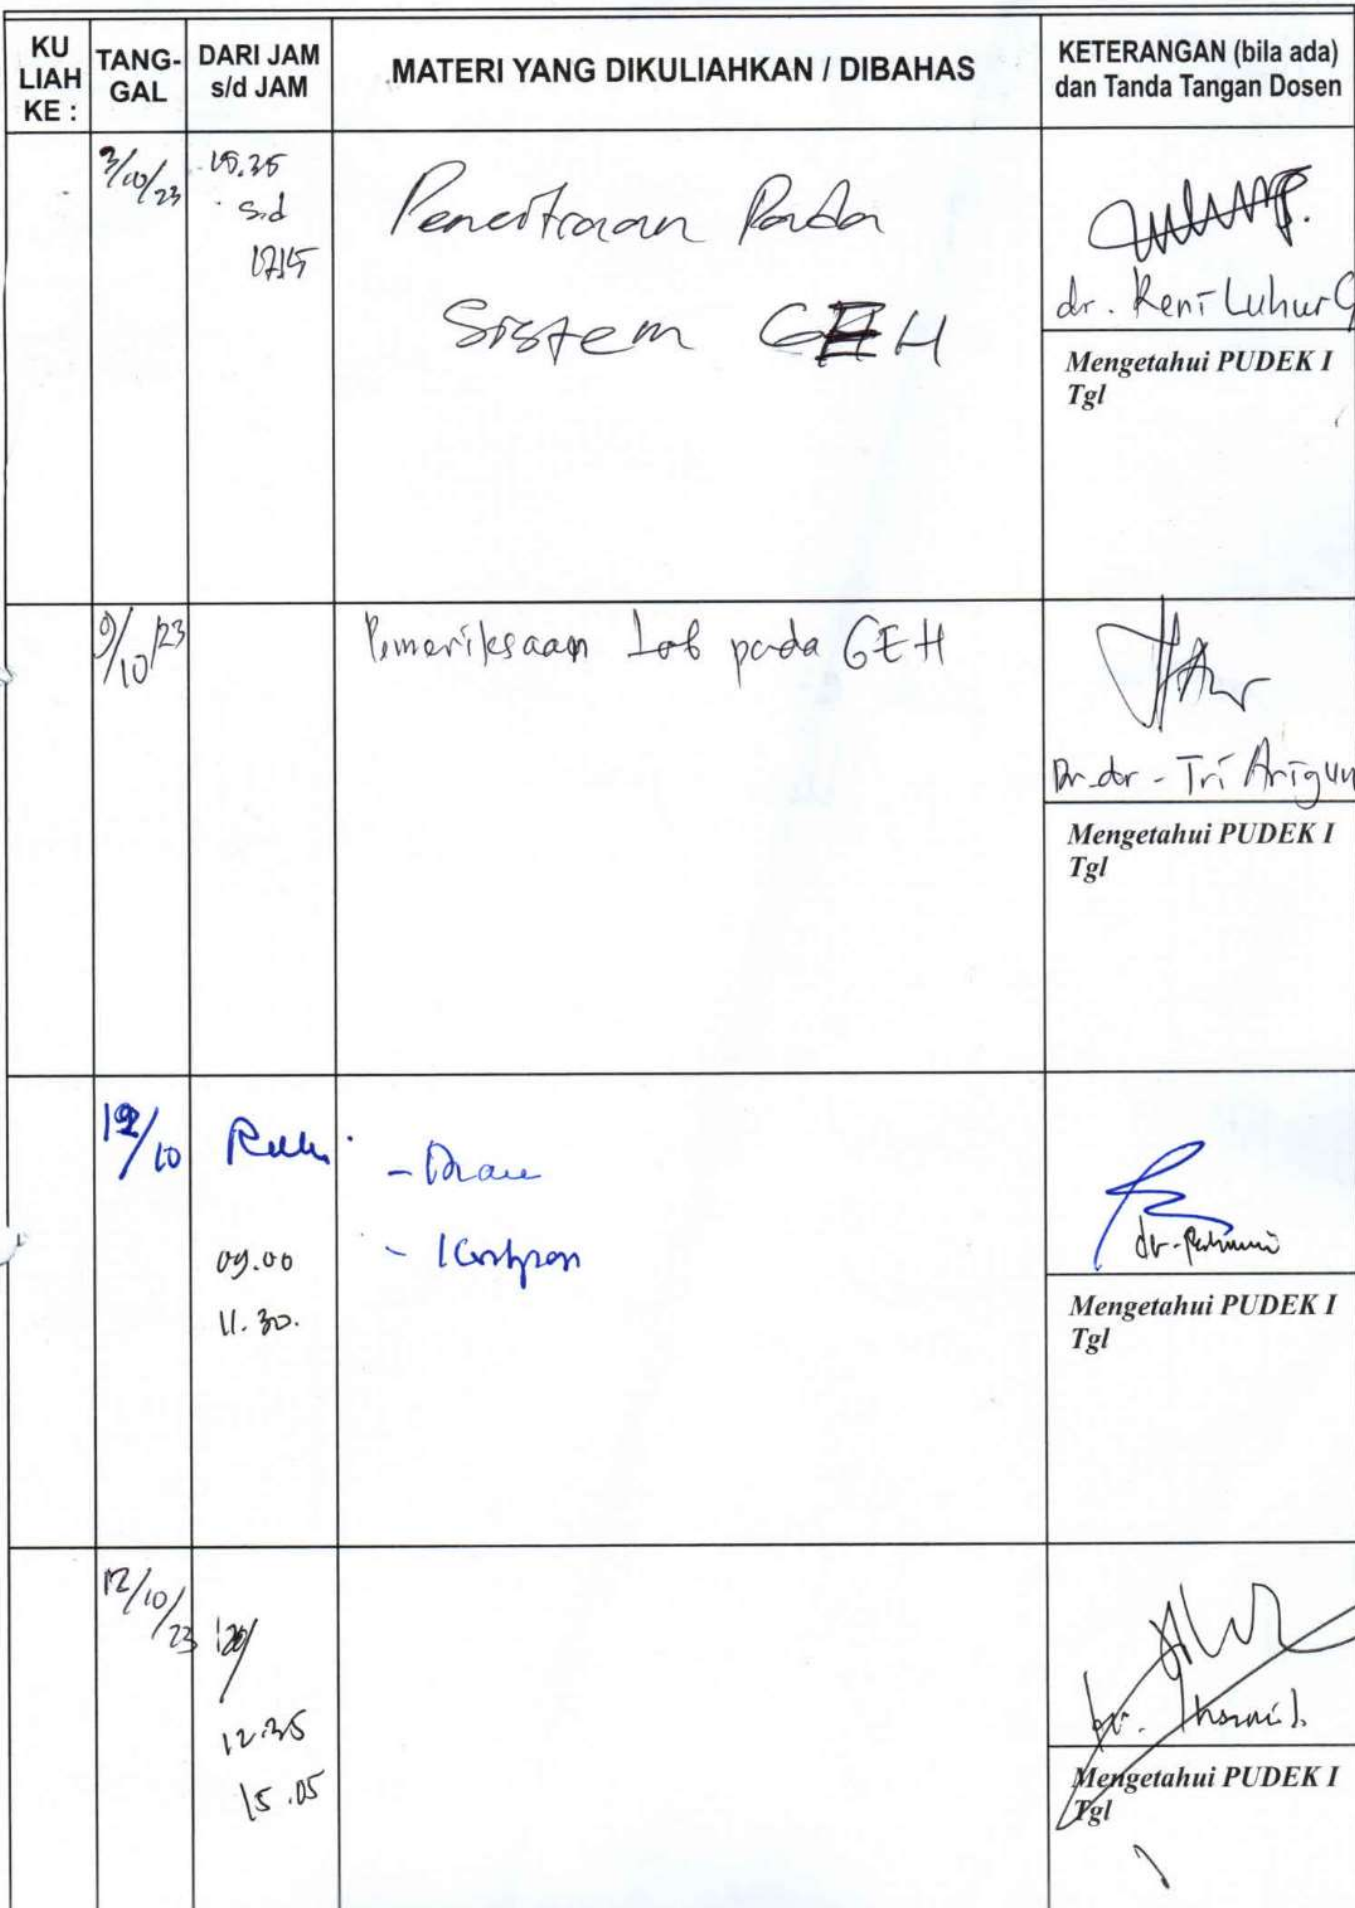 KU LIAH KE :
TANG-GAL
DARI JAM s/d JAM
MATERI YANG DIKULIAHKAN / DIBAHAS
KETERANGAN (bila ada) dan Tanda Tangan Dosen
3/10/23
15.35
s.d
17.15
Pencitraan Pada
Sistem GEH
dr. Reni Luhur
Mengetahui PUDEK I
Tgl
9/10/23
Pemeriksaan Lab pada GEH
Dr. dr - Tri Arigun
Mengetahui PUDEK I
Tgl
12/10
- Diare
09.00
11.30.
dr.
Mengetahui PUDEK I
Tgl
12/10/23
12.35
15.05
Mengetahui PUDEK I
Tgl